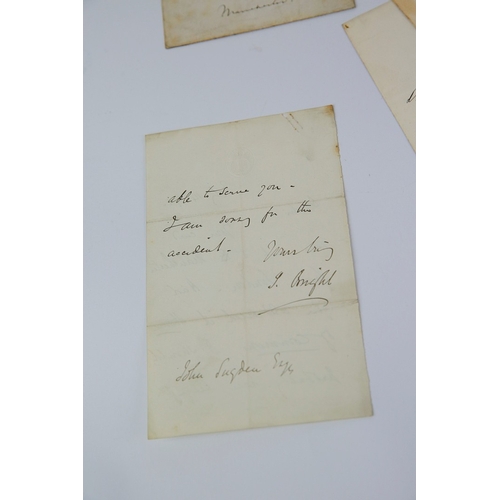 Manchester.
able to serve you -
I am sorry for the
accident -
Yours truly
J. Bright
John Sugden Esq